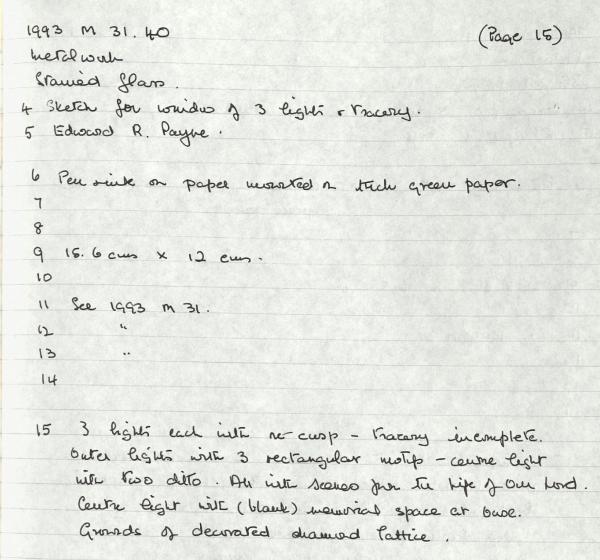 1993 M 31.40 (Page 15)
Metalwork
Stained Glass.
4 Sketch for window of 3 lights + tracery.
5 Edward R. Payne.
6 Pen + ink on paper mounted on thick green paper.
7
8
9 15.6 cms x 12 cms.
10
11 See 1993 M 31.
12 "
13 "
14
15 3 lights each with re-cusp - tracery incomplete.
Outer lights with 3 rectangular motifs - centre light
with two ditto. All with scenes from the Life of Our Lord.
Centre light with (blank) memorial space at base.
Grounds of decorated diamond lattice.